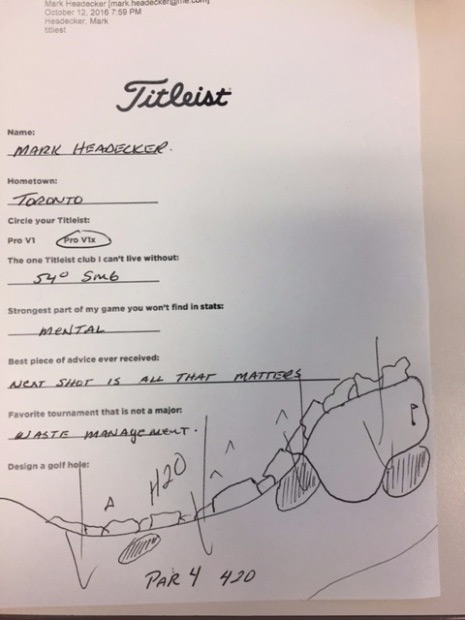 Mark Headecker [mark.headecker@me.com]
October 12, 2016 7:59 PM
Headecker, Mark
titliest
Titleist
Name:
MARK HEADECKER.
Hometown:
TORONTO
Circle your Titleist:
Pro V1 Pro V1x
The one Titleist club I can't live without:
54° Sm6
Strongest part of my game you won't find in stats:
MENTAL
Best piece of advice ever received:
NEXT SHOT IS ALL THAT MATTERS
Favorite tournament that is not a major:
WASTE MANAGEMENT.
Design a golf hole:
H2O
PAR 4 420